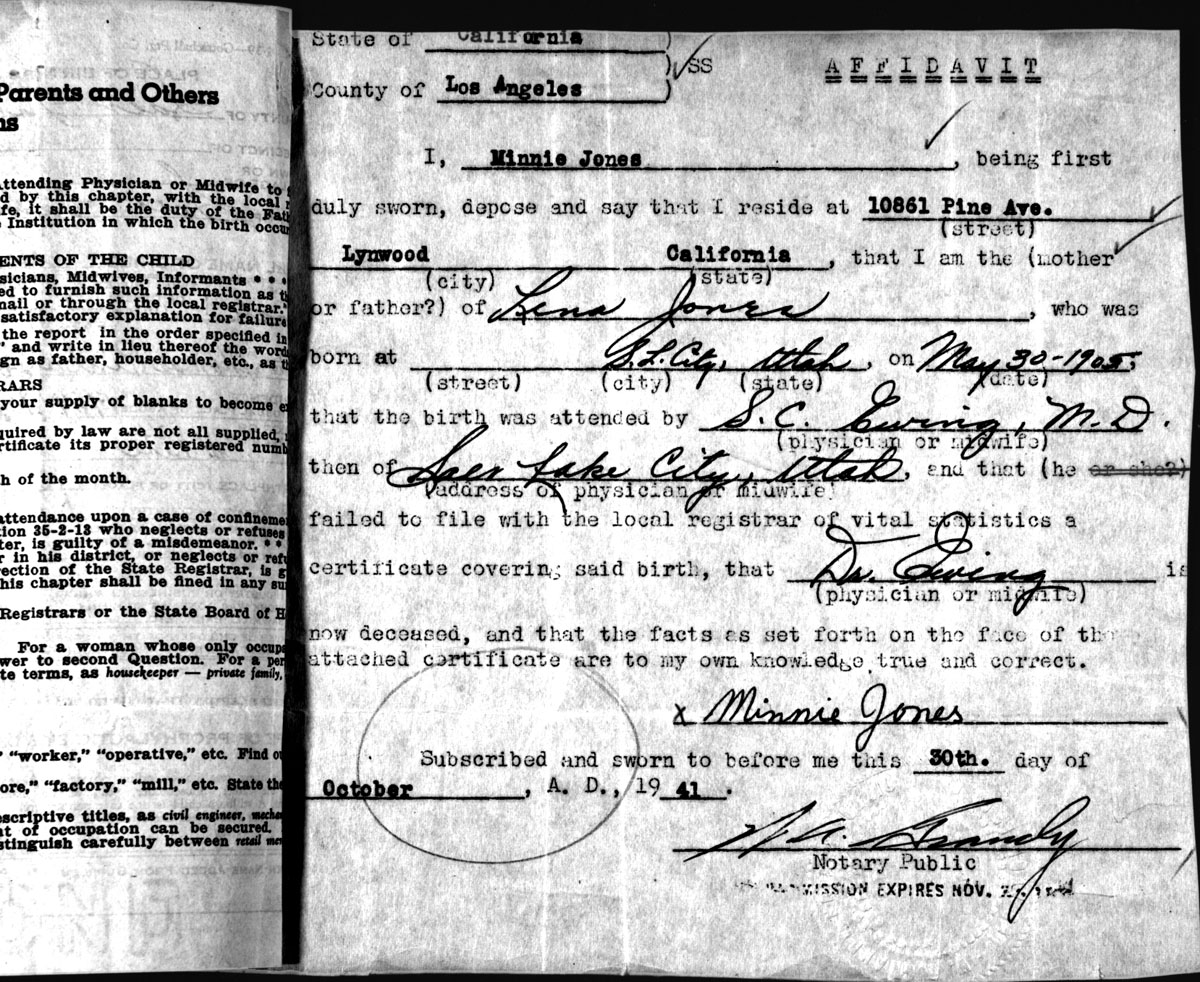 Parents and Others
ns
Attending Physician or Midwife to
d by this chapter, with the local
fe, it shall be the duty of the
Institution in which the birth
ENTS OF THE CHILD
sicians, Midwives, Informants * * *
ed to furnish such information as
mail or through the local registrar.
satisfactory explanation for failure
the report in the order specified in
" and write in lieu thereof the
gn as father, householder, etc., as
RARS
your supply of blanks to become
quired by law are not all supplied,
rtificate its proper registered
h of the month.
attendance upon a case of
tion 35-2-13 who neglects or refuses
ter, is guilty of a misdemeanor. * *
r in his district, or neglects or
rection of the State Registrar, is
his chapter shall be fined in any
Registrars or the State Board of
For a woman whose only
wer to second Question. For a
te terms, as housekeeper — private family,
" "worker," "operative," etc. Find
ore," "factory," "mill," etc. State
escriptive titles, as civil engineer,
nt of occupation can be secured.
stinguish carefully between retail
State of California )
County of Los Angeles ) SS
AFFIDAVIT
I, Minnie Jones, being first
duly sworn, depose and say that I reside at 10861 Pine Ave.
(street)
Lynwood California, that I am the (mother
(city) (state)
or father?) of Lena Jones, who was
born at S.L. City, Utah, on May 30-1905,
(street) (city) (state) (date)
that the birth was attended by S. C. Ewing, M.D.
(physician or midwife)
then of Lake City, Utah, and that (he or she?)
(address of physician or midwife)
failed to file with the local registrar of vital statistics a
certificate covering said birth, that Dr. Ewing is
(physician or midwife)
now deceased, and that the facts as set forth on the face of the
attached certificate are to my own knowledge true and correct.
x Minnie Jones
Subscribed and sworn to before me this 30th. day of
October, A. D., 19 41.
Grandy
Notary Public
EXPIRES NOV.